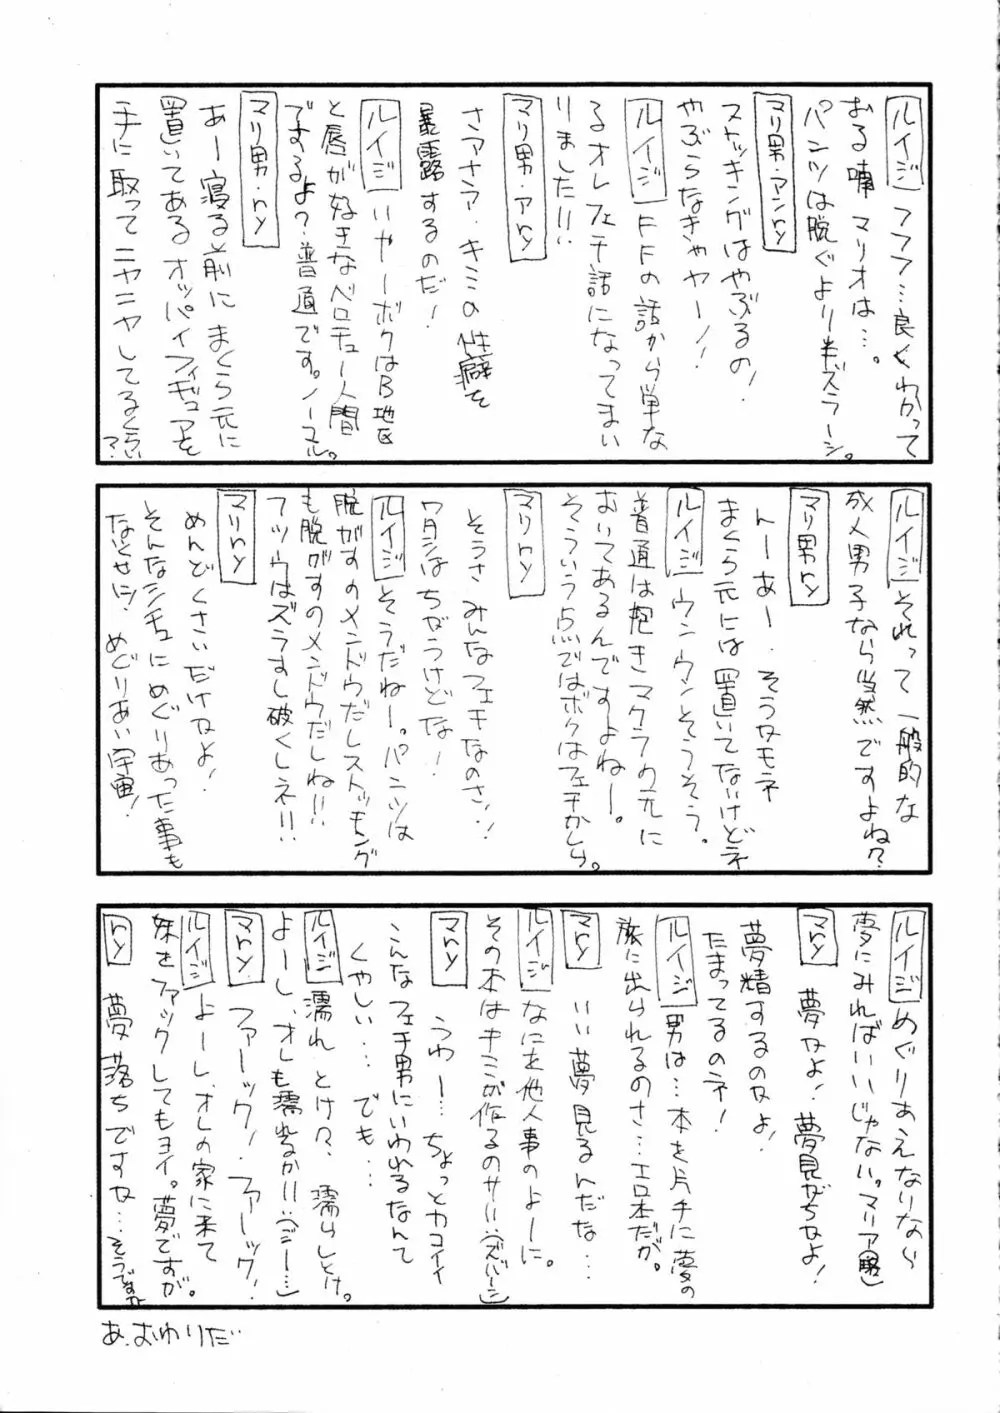 ルイジ フフフ…良くわかって
おる喃 マリオは…。
パンツは脱ぐより半ズラーシ。
マリ男・アンry
ストッキングはやぶるの!
やぶらなきゃヤー!
ルイジ FFの話から単な
るオレフェチ話になってまい
りました!!
マリ男・アry
さアナラ・キミの性癖を
暴露するのだ!
ルイジ いやーボクはB地区
と唇が好きなベロチュー人間
ですするよ?普通です。ノーマル。
マリ男・ry
あー寝る前にまくら元に
置いてあるオッパイフィギュアを
手に取ってニヤニヤしてるくらい
?
ルイジ それって一般的な
成人男子なら当然ですよね?
マリ男ry
んーあー・そうなモネ
まくら元には置いてないけどネ
ルイジ ウンウンそうそう。
普通は抱きマクラの元に
おいてあるんですよねー。
そういう点ではボクはフェチかしら。
マリry
そうさ みんなフェチなのさ!!
ワタシはちがうけどな!
ルイジ そうだねー。パンツは
脱がすのメンドウだしストッキング
も脱がすのメンドウだしね!!
フツウはズラすし破くしネ!!
マリry
めんどくさいだけかよ!
そんなシチュにめぐりあった事も
ないくせに! めぐりあい宇宙!
ルイジ めぐりあえなりなら
夢にみればいいじゃない。マリア(略)
マry
夢かよ! 夢見がちかよ!
夢精するのかよ!
たまってるのネ!
ルイジ 男は…本を片手に夢の
旅に出られるのさ…エロ本だが。
マry
いい夢見るんだな…
ルイジ なにを他人事のよーに。
その本はキミが作るのサ!!(ズバーン)
マry
うわー…ちょっとカコイイ
こんなフェチ男にいわれるなんて
くやしい…でも…
ルイジ 濡れ とけ?、濡らしとけ。
よーし、オレも濡れるか!!(ジー…)
マry ファーック! ファーック!
ルイジ よーし、オレの家に来て
妹をファックしてもヨイ。夢ですが。
ry 夢落ちですか…そうですか
あ、おわりだ…